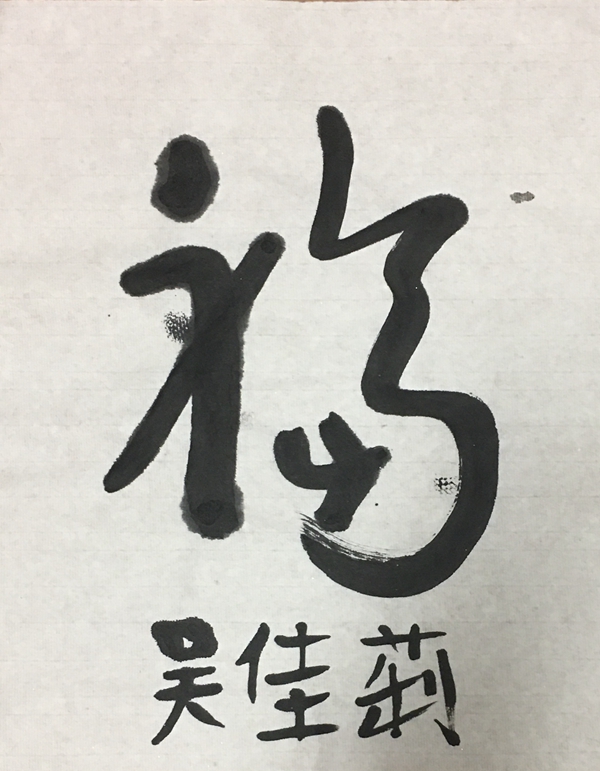 福
吴佳莉